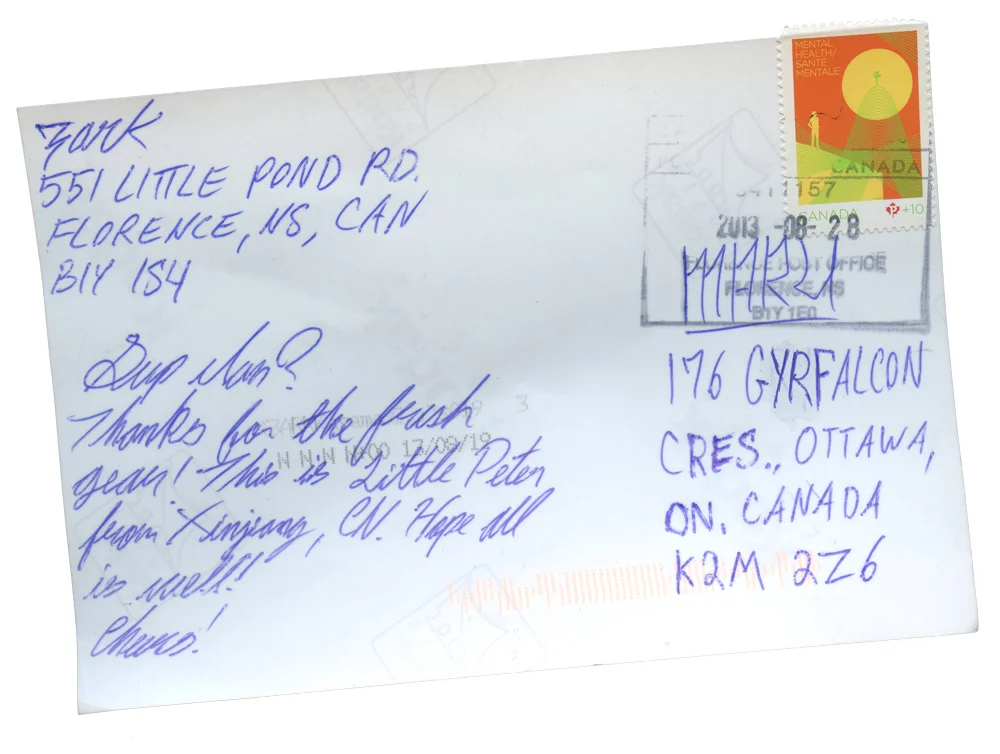 Zark
551 LITTLE POND RD.
FLORENCE, NS, CAN
B1Y 1S4
Sup Man?
Thanks for the fresh
gear! This is Little Peter
from Xinjiang, CN. Hope all
is well!
Cheers!
MENTAL
HEALTH/
SANTÉ
MENTALE
CANADA
P +10
CANADA
1157
2013 -08- 28
FLORENCE POST OFFICE
FLORENCE, NS
B1Y 1E0
176 GYRFALCON
CRES., OTTAWA,
ON, CANADA
K2M 2Z6
3
N N N N 00 13/09/19